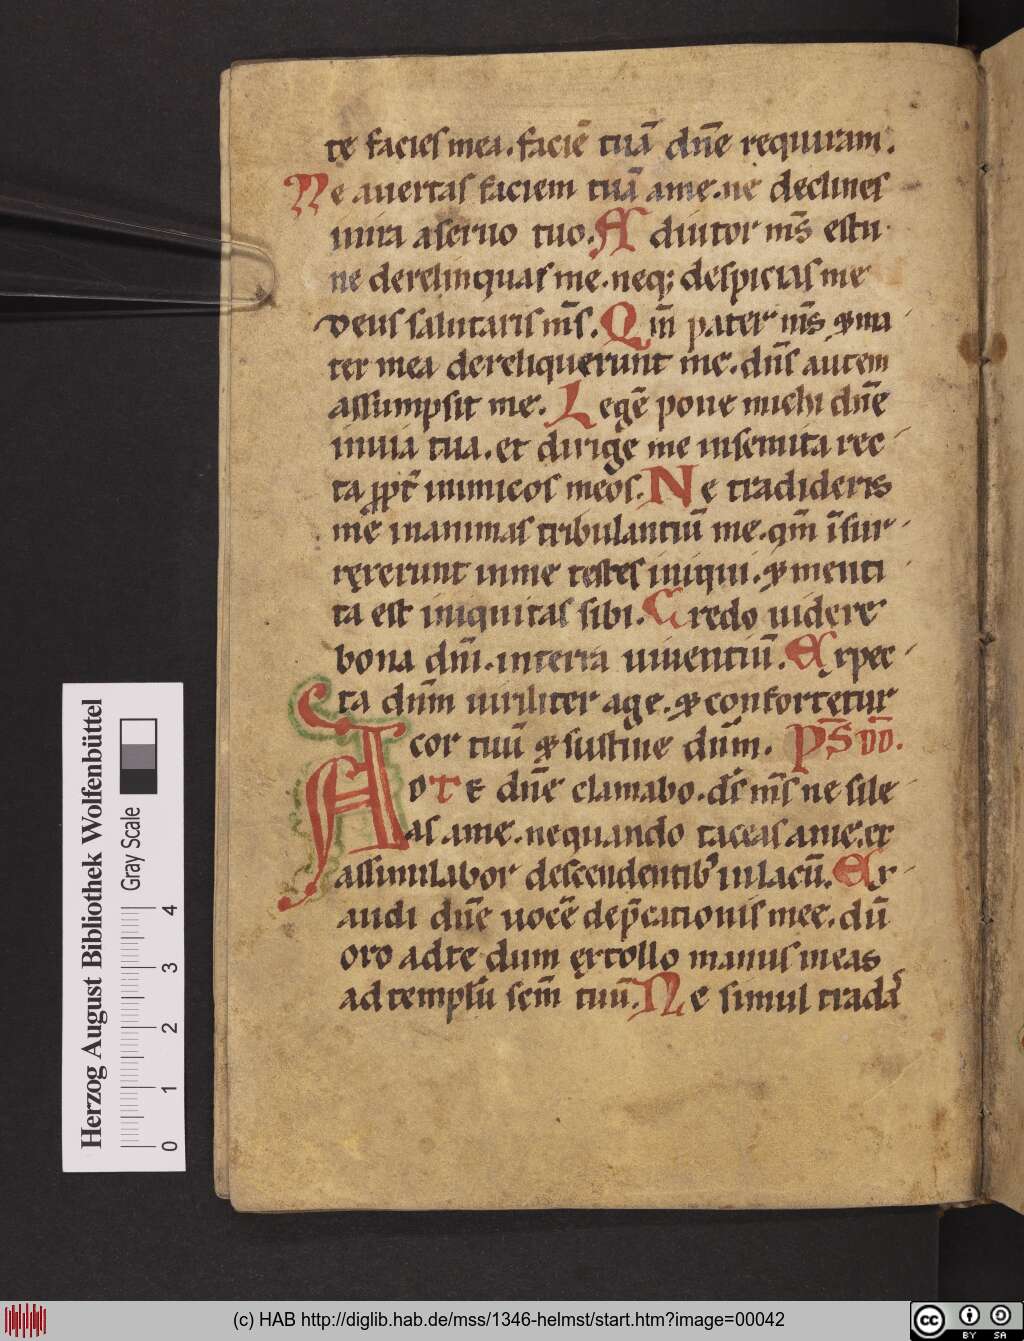 te facies mea. faciē tuā dn̄e requiram.
Ne auertas faciem tuā a me. ne declines
in ira a seruo tuo. Adiutor m̄s estu
ne derelinquas me. neq; despicias me
deus salutaris m̄s. Qm̄ pater m̄s & ma
ter mea dereliquerunt me. dn̄s autem
assumpsit me. Legē pone michi dn̄e
in uia tua. et dirige me in semita rec
ta ꝓpt̄ inimicos meos. Ne tradideris
me in animas tribulantiū me. qm̄ īsur
rexerunt in me testes iniqui. & menti
ta est iniquitas sibi. Credo uidere
bona dn̄i. in terra uiuentiū. Expec
ta dn̄m uiriliter age. & confortetur
cor tuū & sustine dn̄m. P̄S D̄D̄.
AD TE dn̄e clamabo. ds̄ m̄s ne sile
as a me. ne quando taceas a me. et
assimilabor descendentib' in lacū. Ex
audi dn̄e uocē dep̄cationis mee. dū
oro ad te dum extollo manus meas
ad templū scm̄ tuū. Ne simul tradas
Herzog August Bibliothek Wolfenbüttel
Gray Scale
0 1 2 3 4
(c) HAB http://diglib.hab.de/mss/1346-helmst/start.htm?image=00042
cc BY SA